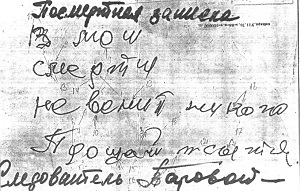 Посмертная записка
В мои
смерти
не венит никого
Прощай
Следователь Баровой